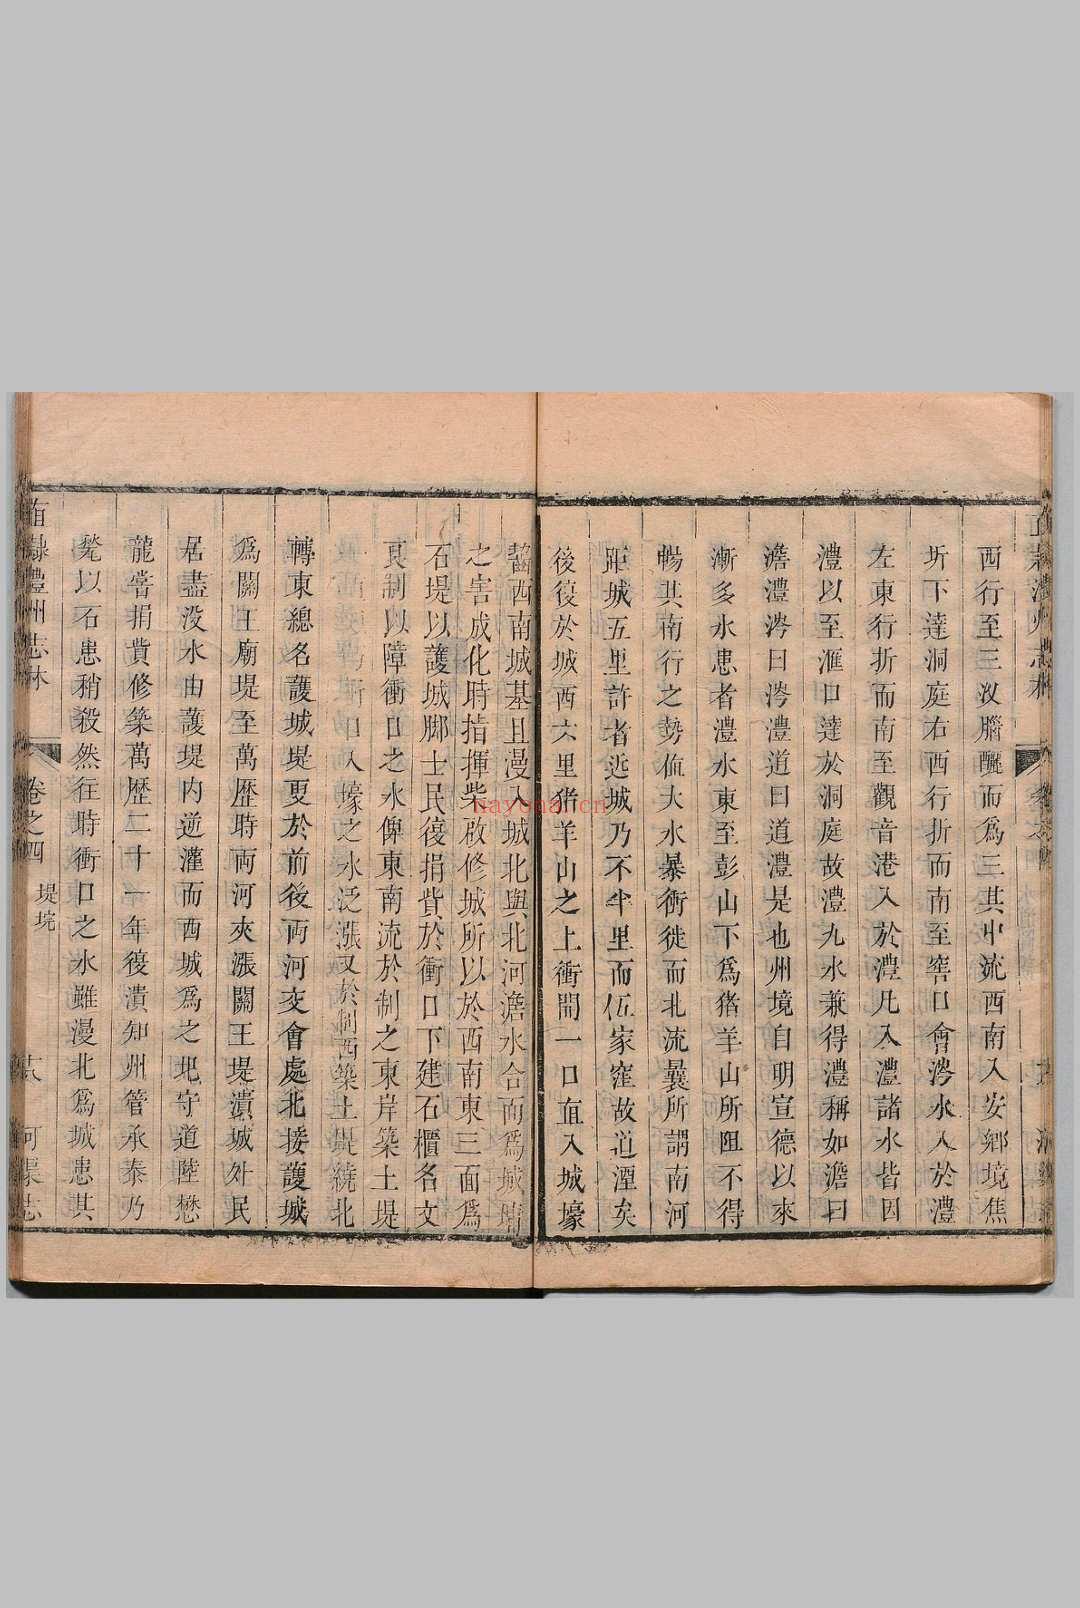 西行至三汊腦釃而爲三其中流西南入安鄉境焦
圻下達洞庭右西行折而南至窖口會涔水入於澧
左東行折而南至觀音港入於澧凡入澧諸水皆因
澧以至滙口達於洞庭故澧九水兼得澧稱如澹曰
澹澧涔曰涔澧道曰道澧是也州境自明宣德以來
漸多水患者澧水東至彭山下爲猪羊山所阻不得
暢其南行之勢値大水暴衝徙而北流曩所謂南河
距城五里許者近城乃不半里而伍家窪故道湮矣
後復於城西六里猪羊山之上衝開一口直入城壕
齧西南城基且漫入城北與北河澹水合而爲城
之害成化時指揮柴啟修城所以於西南東三面爲
石堤以護城脚士民復捐貲於衝口下建石櫃名文
良制以障衝口之水俾東南流於制之東岸築土堤
而衝口入壕之水泛漲又於制西築土堤繞北
轉東總名護城堤更於前後両河交會處北接護城
爲關王廟堤至萬歷時両河夾漲關王堤潰城外民
居盡没水由護堤内逆灌而西城爲之圮守道陸懋
龍嘗捐貲修築萬歷二十一年復潰知州管承泰乃
甃以石患稍殺然往時衝口之水雖漫北爲城患其
直隸澧州志林
卷之四
堤垸
河渠志
nayona.cn